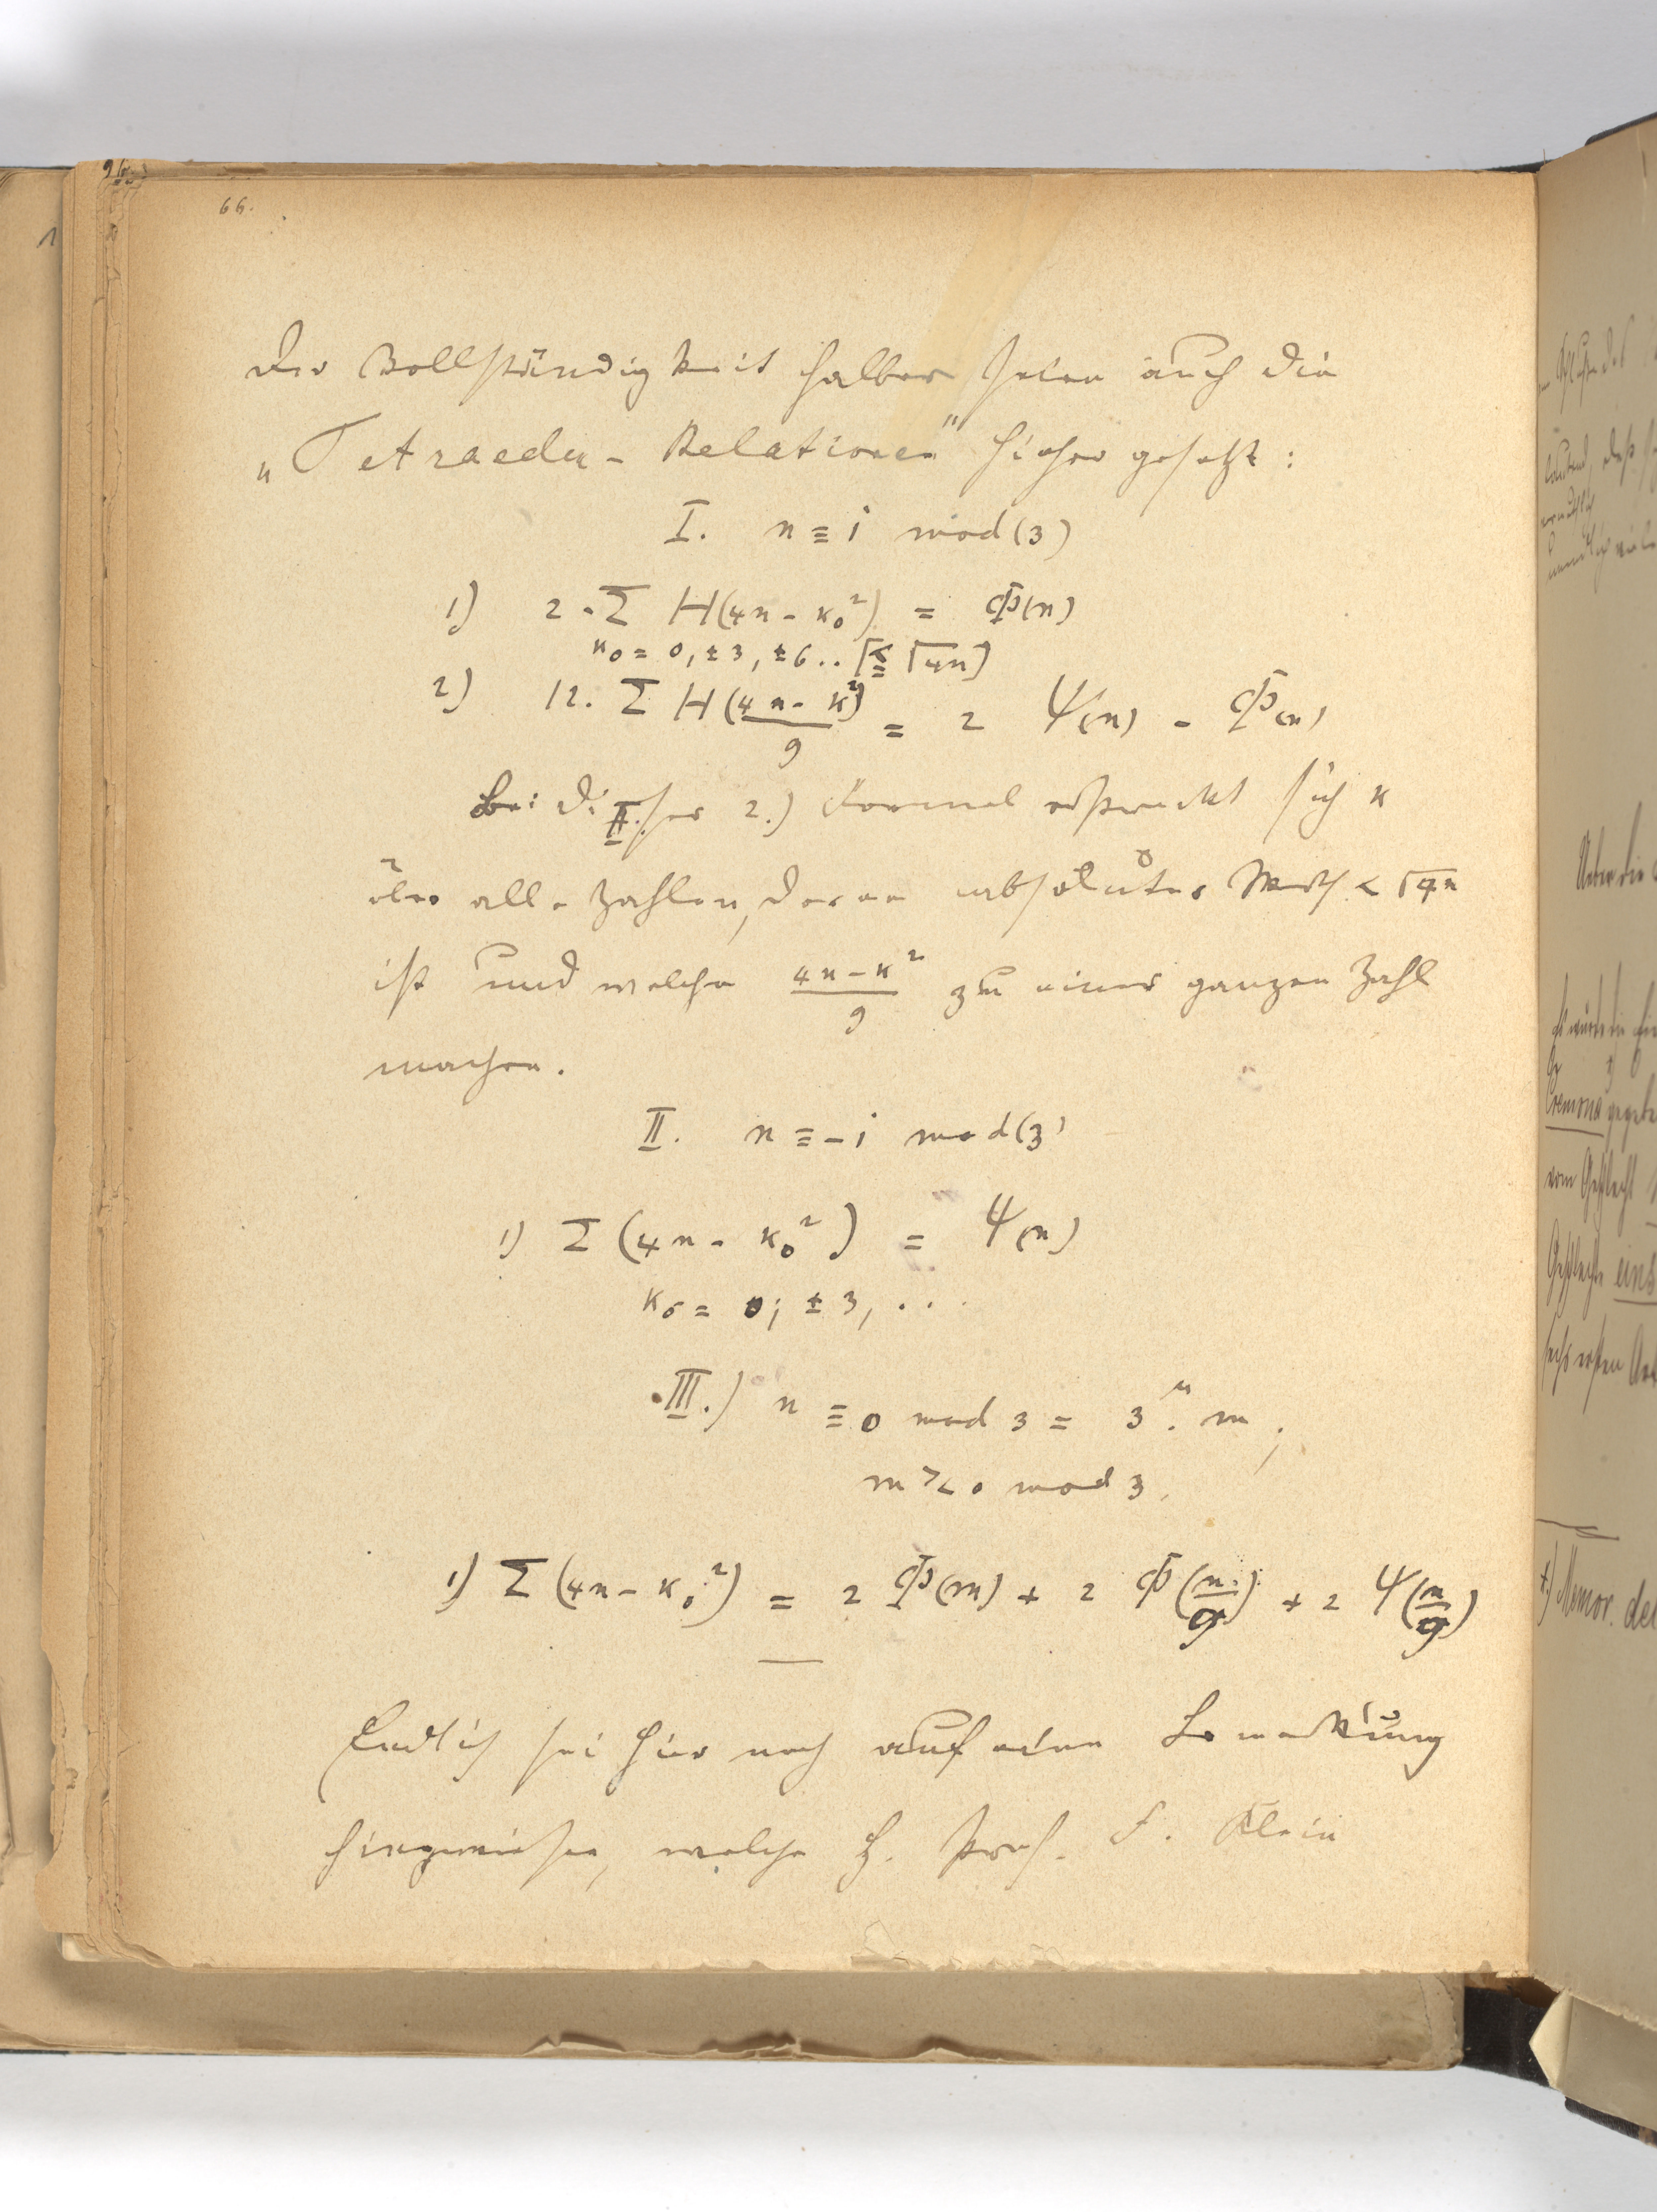 66.
Der Vollständigkeit halber seien auch die
„Tetraeder-Relationen" hieher gesetzt:
I. n ≡ 1 mod (3)
1) 2·Σ H(4n - κ₀²) = Φ(n)
κ₀ = 0, ±3, ±6.. [≦ √4n]
2) 12. Σ H(4n - κ²/9) = 2 Ψ(n) - Φ(n)
Bei dieser 2.) Formel erstreckt sich κ
II.
über alle Zahlen, deren absoluter Werth < √4n
ist und welche 4n-κ²/9 zu einer ganzen Zahl
machen.
II. n ≡ -1 mod (3)
1) Σ (4n - κ₀²) = Ψ(n)
κ₀ = 0; ±3, ...
III.) n ≡ 0 mod 3 = 3^μ. m;
m >< 0 mod 3.
1) Σ (4n - κ₀²) = 2 Φ(m) + 2 Φ(n/9) + 2 Ψ(n/9)
Endlich sei hier noch auf eine Bemerkung
hingewiesen, welche H. Prof. F. Klein
Ueber die
Cremona
vom Geschlecht
Geschlecht eins
sechs ersten
*) Memor. del